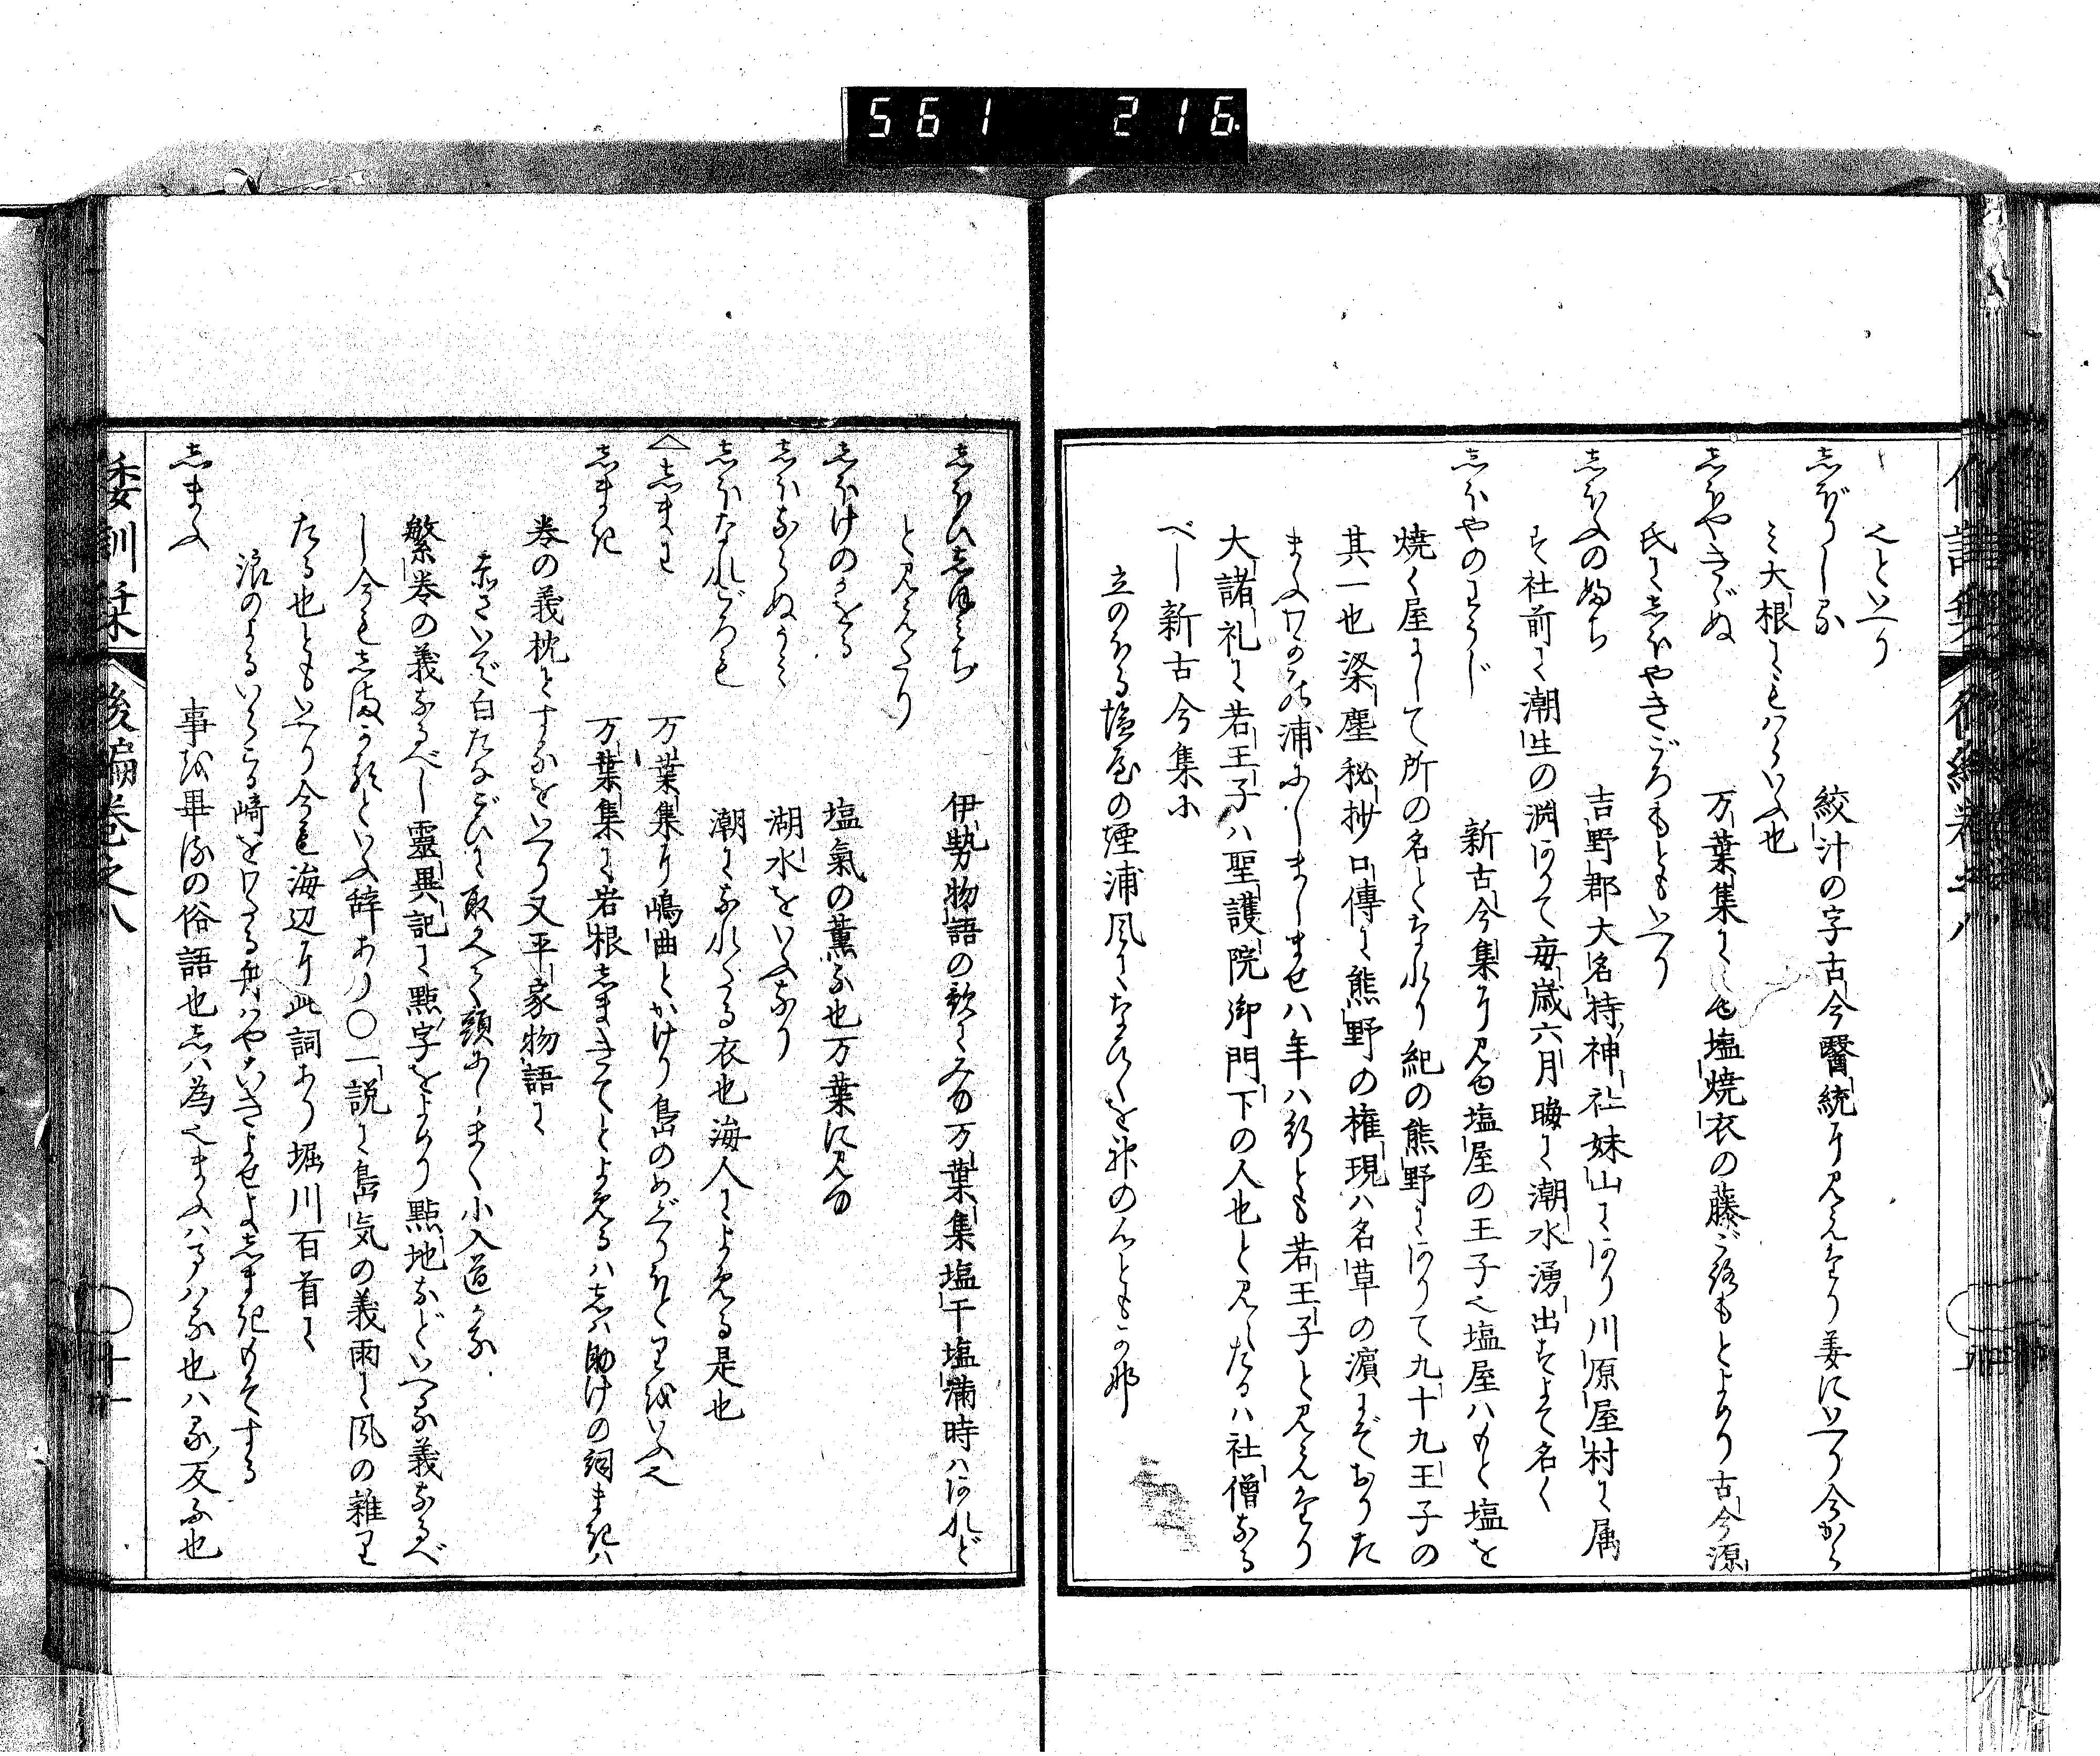 561 216
也といへり
志ぼりしる 絞汁の字古今醫統に見えたり姜にいへり今から
ミ大根にもいへり也
志ほやきぎぬ 万葉集に見ゆ塩焼衣の藤ごろもとよめり古今源
氏に志ほやきごろもともいへり
志ほふのふち 吉野郡大名持神社妹山にあり川原屋村に属
す社前に潮生の渊ありて毎歳六月晦に潮水湧出すよて名く
志ほやのわうじ 新古今集に見ゆ塩屋の王子也塩屋ハもと塩を
焼く屋にして所の名となれり紀の熊野にありて九十九王子の
其一也梁塵秘抄口傳に熊野の権現ハ名草の濱にぞおりた
まふわかの浦にしましませハ年ハ行とも若王子と見えたり
大諸礼に若王子ハ聖護院御門下の人也と見えたるハ社僧なる
べし新古今集に
立のほる塩屋の煙浦風になひくを神の心ともかな
志ほひ志ほみち 伊勢物語の歌にみゆ万葉集塩干塩満時ハあれど
と見えたり
志ほけのかをる 塩氣の薫る也万葉に見ゆ
志ほならぬうミ 湖水をいふなり
志ほなれごろも 潮になれたる衣也海人によめる是也
志まわ 万葉集に嶋曲とかけり島のめぐりたとわをいふ也
志まき 万葉集に岩根志まきてとよめるハ志ハ助けの詞まきハ
巻の義枕とするをいへり又平家物語に
赤さいで白たなごひに取かへて頭にしまく小入道かな
繁巻の義なるべし靈異記に點字をよめり點地などいへる義なるべ
し今も志まかるといふ辞あり○一説に島気の義雨に風の雑わ
たる也ともいへり今も海辺に此詞あり堀川百首に
浪のよるいらこる崎をわたる舟ハやこいきよせよ志まきもそする
志まふ 事を畢るの俗語也志ハ為也まふハるハる也ハる反ふ也
倭訓栞 後編巻之八 廿一